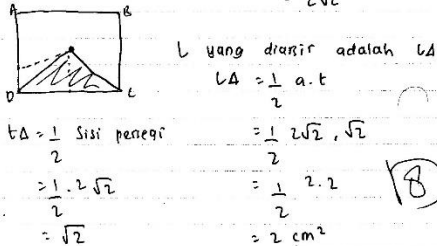 2√2
A B
L yang diarsir adalah LΔ
LΔ = 1/2 a.t
D C
tΔ = 1/2 sisi persegi
= 1/2 . 2√2
= √2
= 1/2 2√2 . √2
= 1/2 2.2
= 2 cm²
8